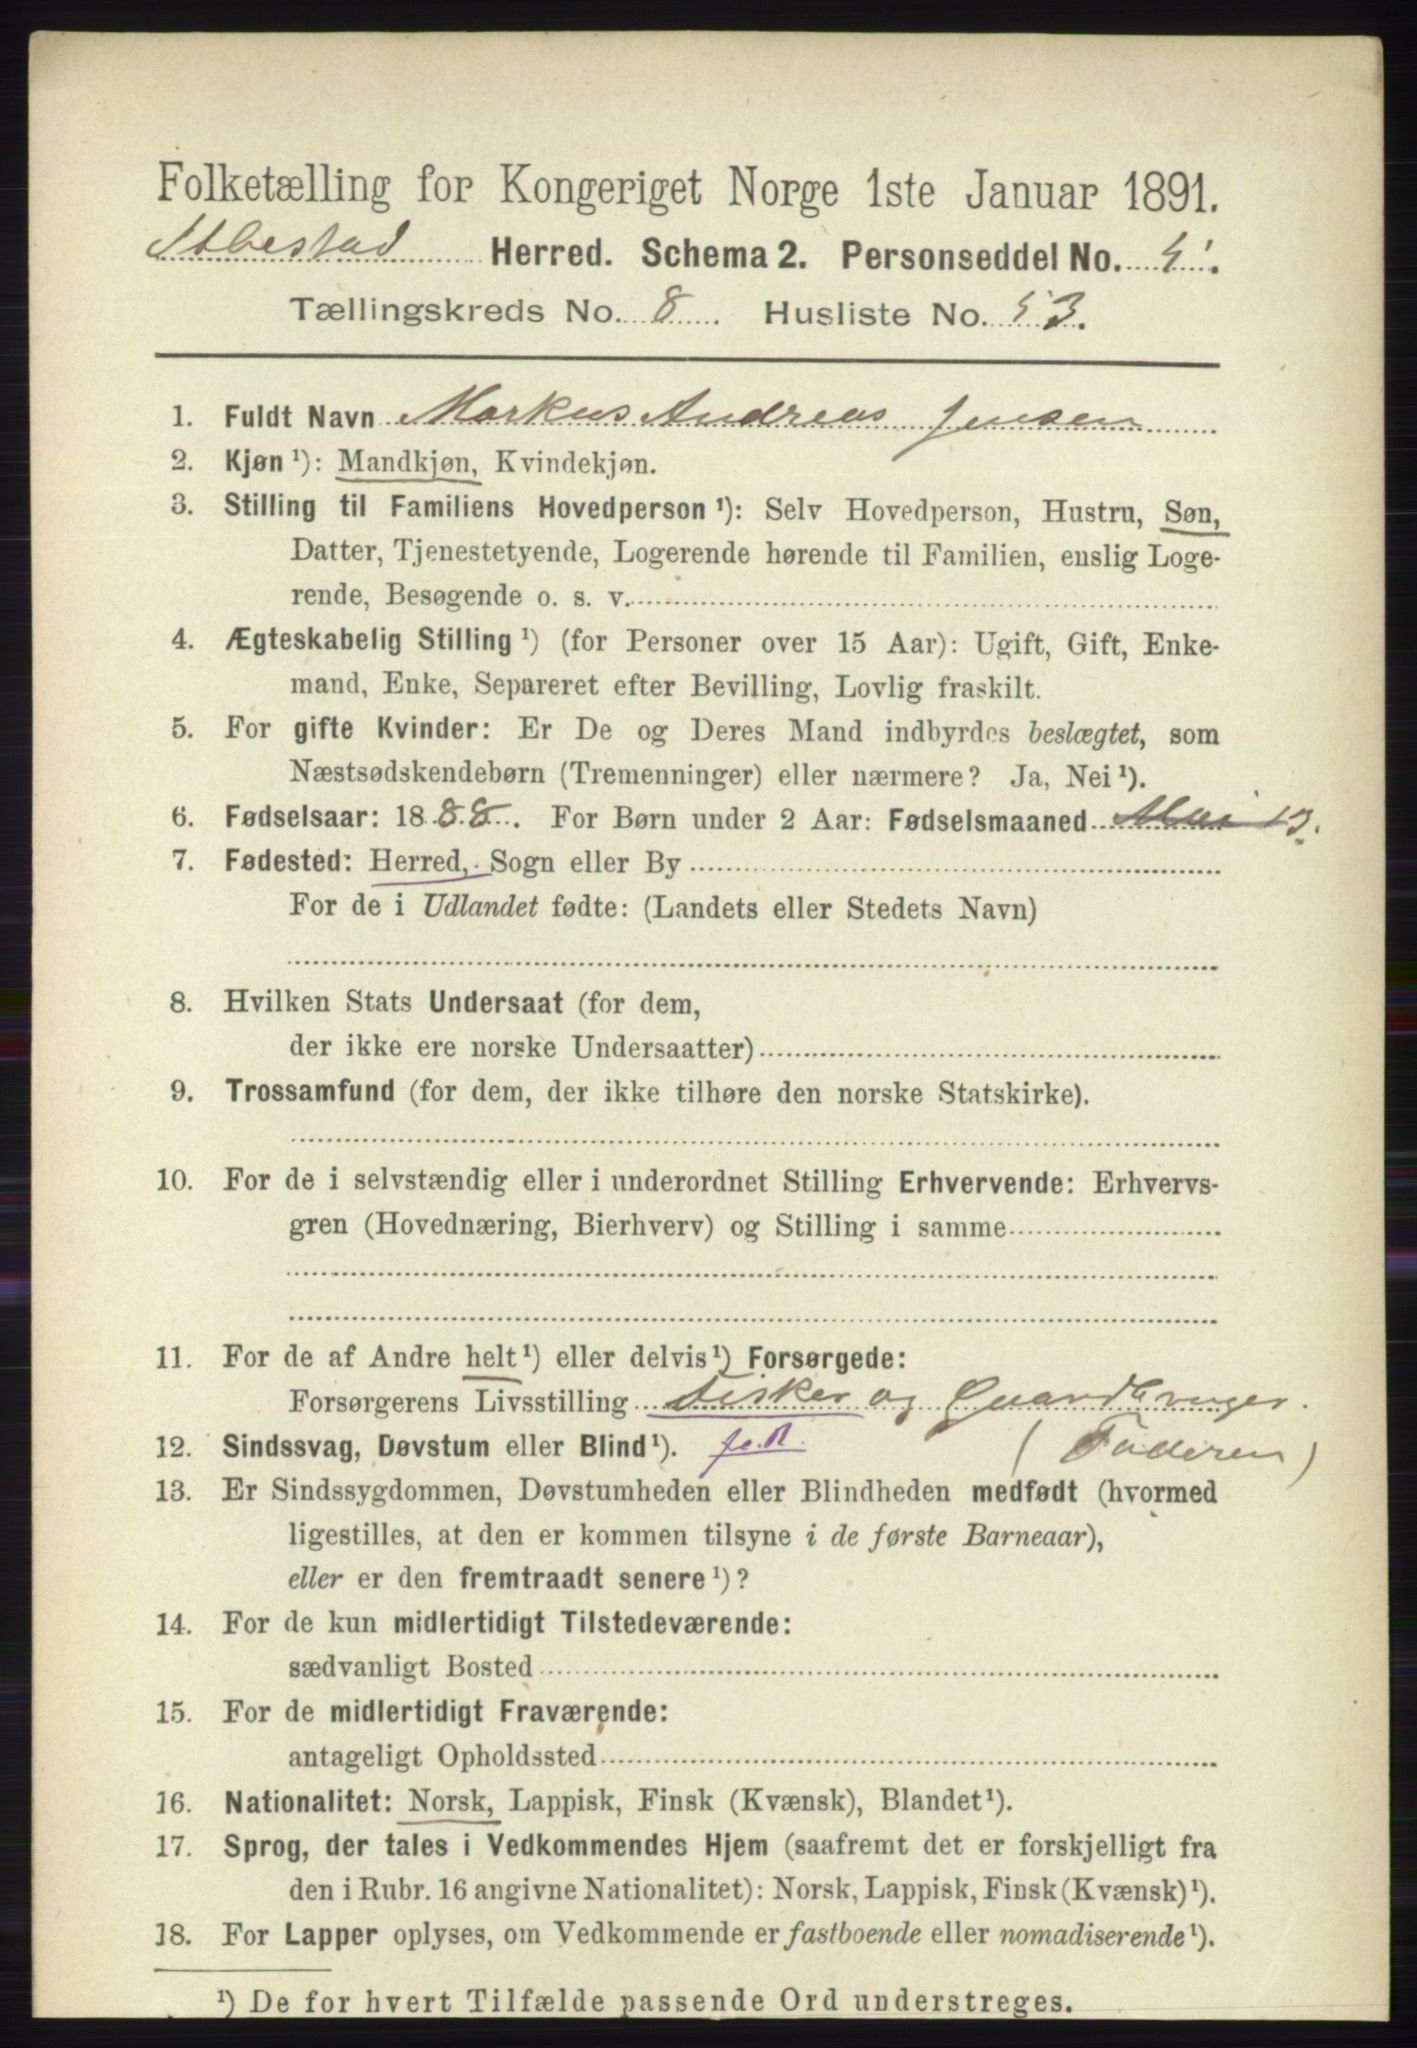 Folketælling for Kongeriget Norge 1ste Januar 1891.
Ibbestad Herred. Schema 2. Personseddel No. 5.
Tællingskreds No. 8 Husliste No. 53.
1. Fuldt Navn Markus Andreas Jensen
2. Kjøn ¹): Mandkjøn, Kvindekjøn.
3. Stilling til Familiens Hovedperson ¹): Selv Hovedperson, Hustru, Søn,
Datter, Tjenestetyende, Logerende hørende til Familien, enslig Loge-
rende, Besøgende o. s. v.
4. Ægteskabelig Stilling ¹) (for Personer over 15 Aar): Ugift, Gift, Enke-
mand, Enke, Separeret efter Bevilling, Lovlig fraskilt.
5. For gifte Kvinder: Er De og Deres Mand indbyrdes beslægtet, som
Næstsødskendebørn (Tremenninger) eller nærmere? Ja, Nei ¹).
6. Fødselsaar: 1888. For Børn under 2 Aar: Fødselsmaaned Mai 13.
7. Fødested: Herred, Sogn eller By
For de i Udlandet fødte: (Landets eller Stedets Navn)
8. Hvilken Stats Undersaat (for dem,
der ikke ere norske Undersaatter)
9. Trossamfund (for dem, der ikke tilhøre den norske Statskirke).
10. For de i selvstændig eller i underordnet Stilling Erhvervende: Erhvervs-
gren (Hovednæring, Bierhverv) og Stilling i samme
11. For de af Andre helt ¹) eller delvis ¹) Forsørgede:
Forsørgerens Livsstilling Fisker og Gaardbruger.
12. Sindssvag, Døvstum eller Blind ¹). (Faderen)
13. Er Sindssygdommen, Døvstumheden eller Blindheden medfødt (hvormed
ligestilles, at den er kommen tilsyne i de første Barneaar),
eller er den fremtraadt senere ¹)?
14. For de kun midlertidigt Tilstedeværende:
sædvanligt Bosted
15. For de midlertidigt Fraværende:
antageligt Opholdssted
16. Nationalitet: Norsk, Lappisk, Finsk (Kvænsk), Blandet ¹).
17. Sprog, der tales i Vedkommendes Hjem (saafremt det er forskjelligt fra
den i Rubr. 16 angivne Nationalitet): Norsk, Lappisk, Finsk (Kvænsk) ¹).
18. For Lapper oplyses, om Vedkommende er fastboende eller nomadiserende ¹).
¹) De for hvert Tilfælde passende Ord understreges.